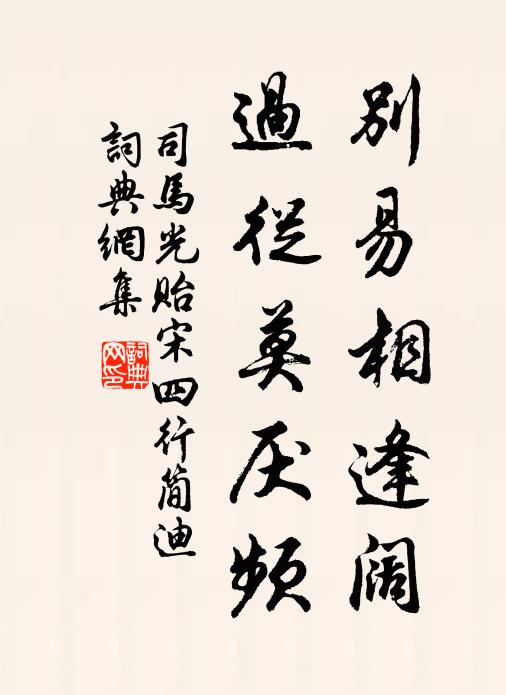 别易相逢阔
過從莫厌頻
司馬光貽宋四行简迪
詞典網集
詞典
网印